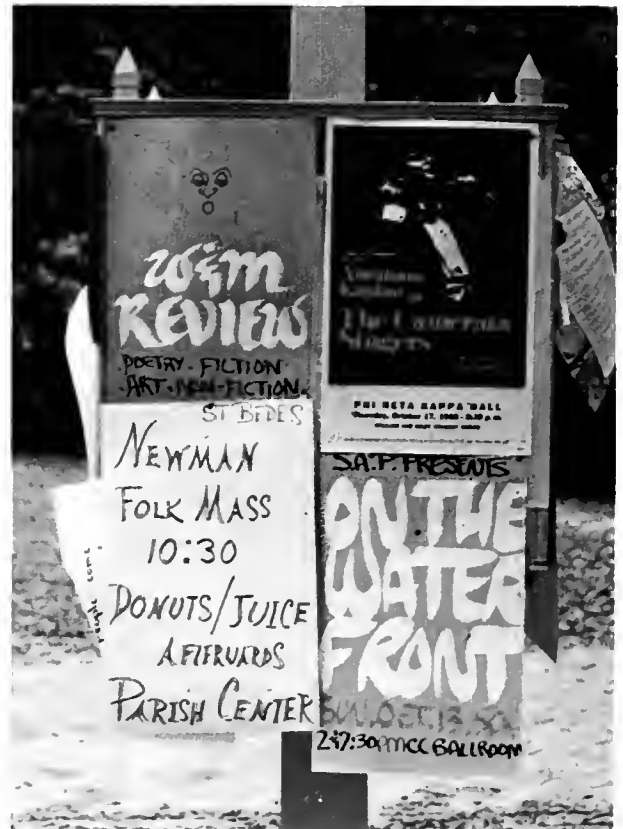 W&M
REVIEW
POETRY · FICTION
· ART · NON-FICTION ·
ST BEDES
NEWMAN
FOLK MASS
10:30
DONUTS/JUICE
AFTERWARDS
PARISH CENTER
The
Singers
PHI BETA KAPPA HALL
Thursday, October 17,
S.A.P. PRESENTS
ON THE
WATER
FRONT
SUN. OCT. 13
2&7:30PM CC BALLROOM
people come